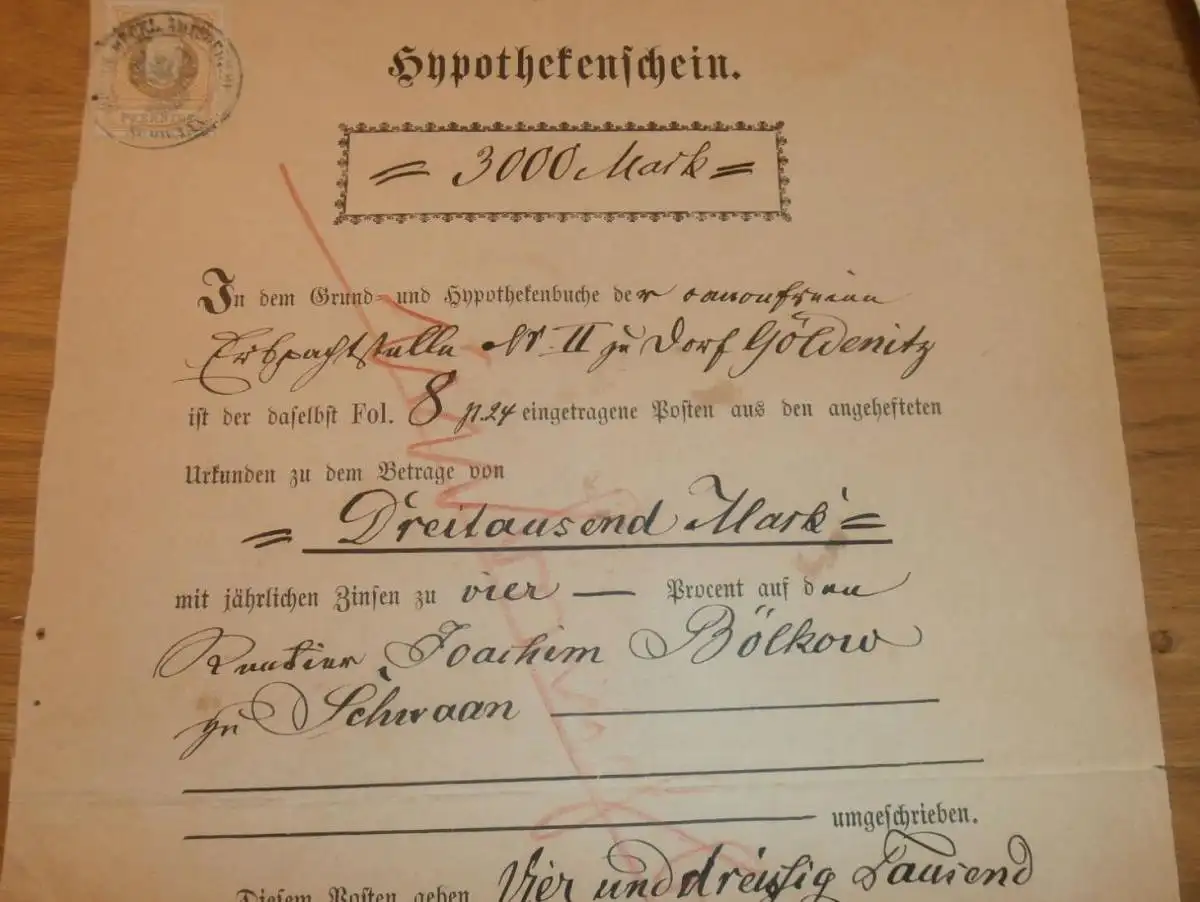 PFENNIGE
Hypothekenschein.
= 3000 Mark =
In dem Grund- und Hypothekenbuche der canonfreien
Erbpachtstelle Nr. II zu Dorf Göldenitz
ist der daselbst Fol. 8 p. 24 eingetragene Posten aus den angehefteten
Urkunden zu dem Betrage von
= Dreitausend Mark =
mit jährlichen Zinsen zu vier — Procent auf den
Rentier Joachim Bölkow
zu Schwaan
umgeschrieben.
Diesem Posten gehen Vier und dreissig Tausend